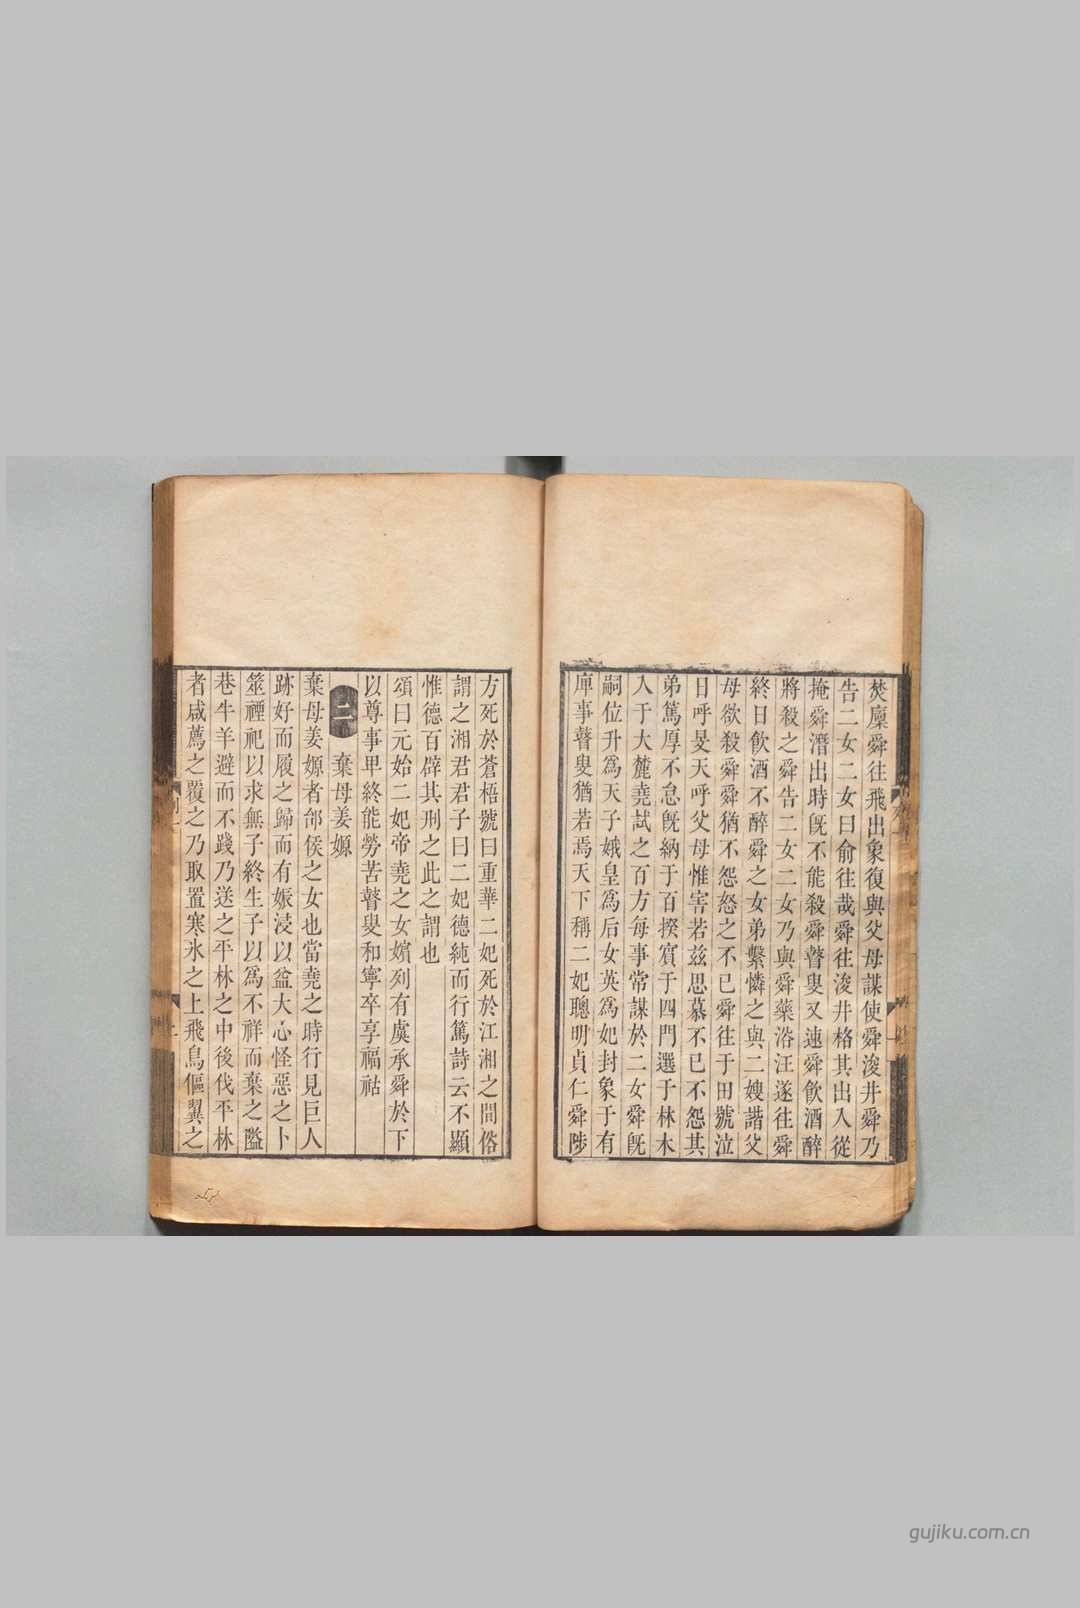 焚廩舜往飛出象復與父母謀使舜浚井舜乃
告二女二女曰俞往哉舜往浚井格其出入從
掩舜潛出時旣不能殺舜瞽叟又速舜飮酒醉
將殺之舜告二女二女乃與舜藥浴汪遂往舜
終日飮酒不醉舜之女弟繫憐之與二嫂諧父
母欲殺舜舜猶不怨怒之不已舜往于田號泣
日呼旻天呼父母惟害若茲思慕不已不怨其
弟篤厚不怠旣納于百揆賓于四門選于林木
入于大麓堯試之百方每事常謀於二女舜旣
嗣位升爲天子娥皇爲后女英爲妃封象于有
庳事瞽叟猶若焉天下稱二妃聰明貞仁舜陟
方死於蒼梧號曰重華二妃死於江湘之間俗
謂之湘君君子曰二妃德純而行篤詩云不顯
惟德百辟其刑之此之謂也
頌曰元始二妃帝堯之女嬪列有虞承舜於下
以尊事卑終能勞苦瞽叟和寧卒享福祜
二 棄母姜嫄
棄母姜嫄者邰侯之女也當堯之時行見巨人
跡好而履之歸而有娠浸以益大心怪惡之卜
筮禋祀以求無子終生子以爲不祥而棄之隘
巷牛羊避而不踐乃送之平林之中後伐平林
者咸薦之覆之乃取置寒氷之上飛鳥傴翼之
gujiku.com.cn